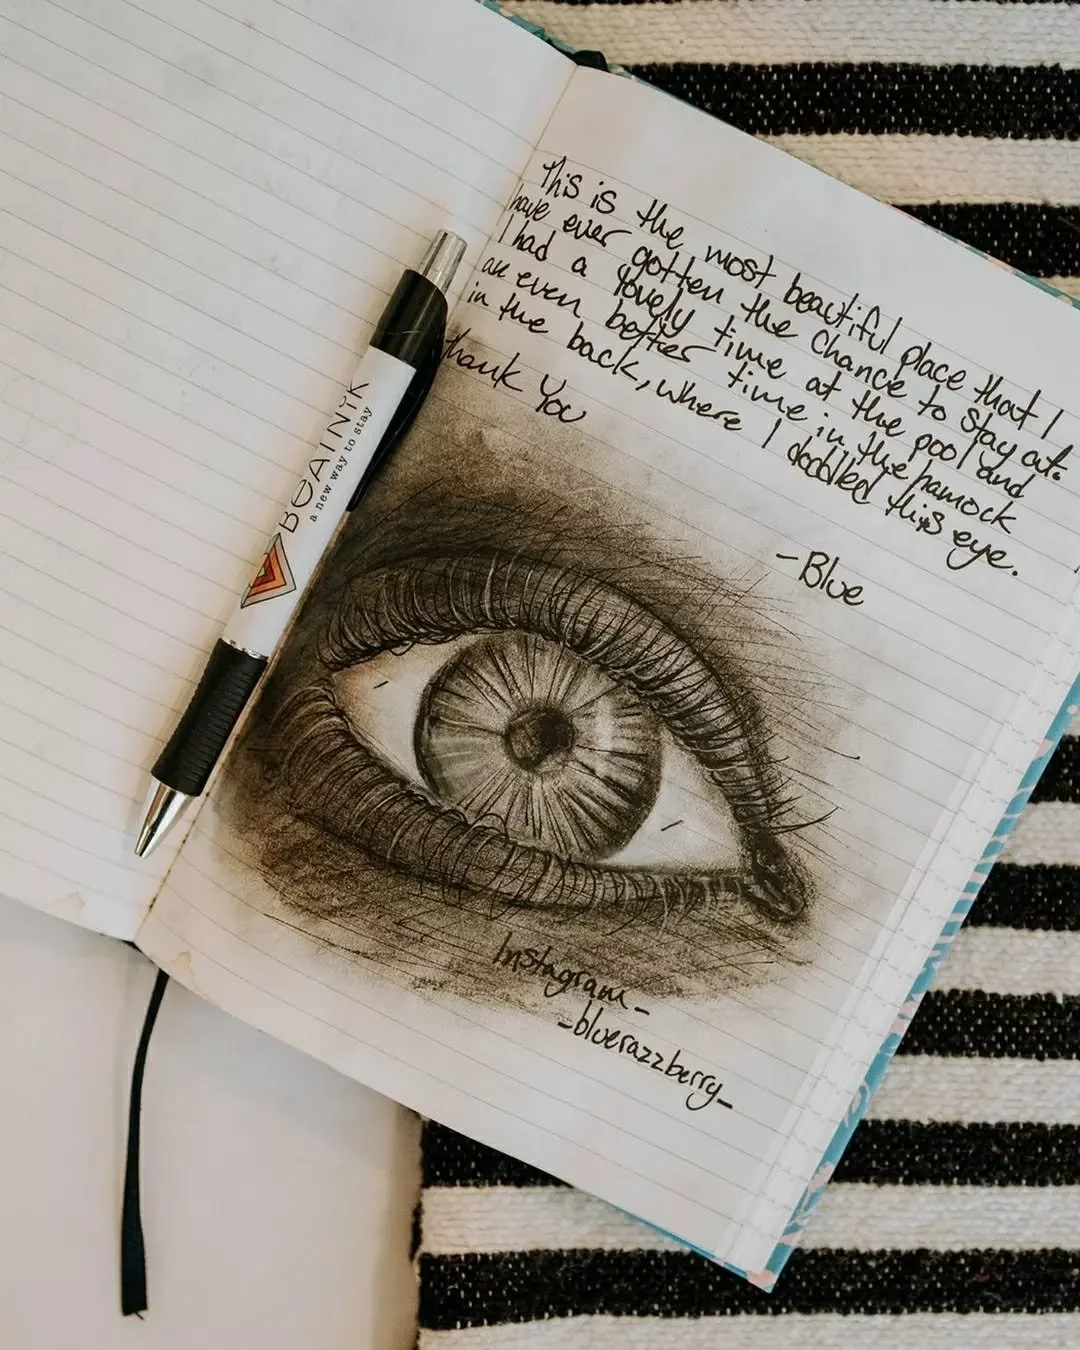 This is the most beautiful place that I
have ever gotten the chance to stay at.
I had a lovely time at the pool and
an even better time in the hamock
in the back, where I doodled this eye.
Thank You
-Blue
BOAINIK
a new way to stay
Instagram_
-bluerazzberry_